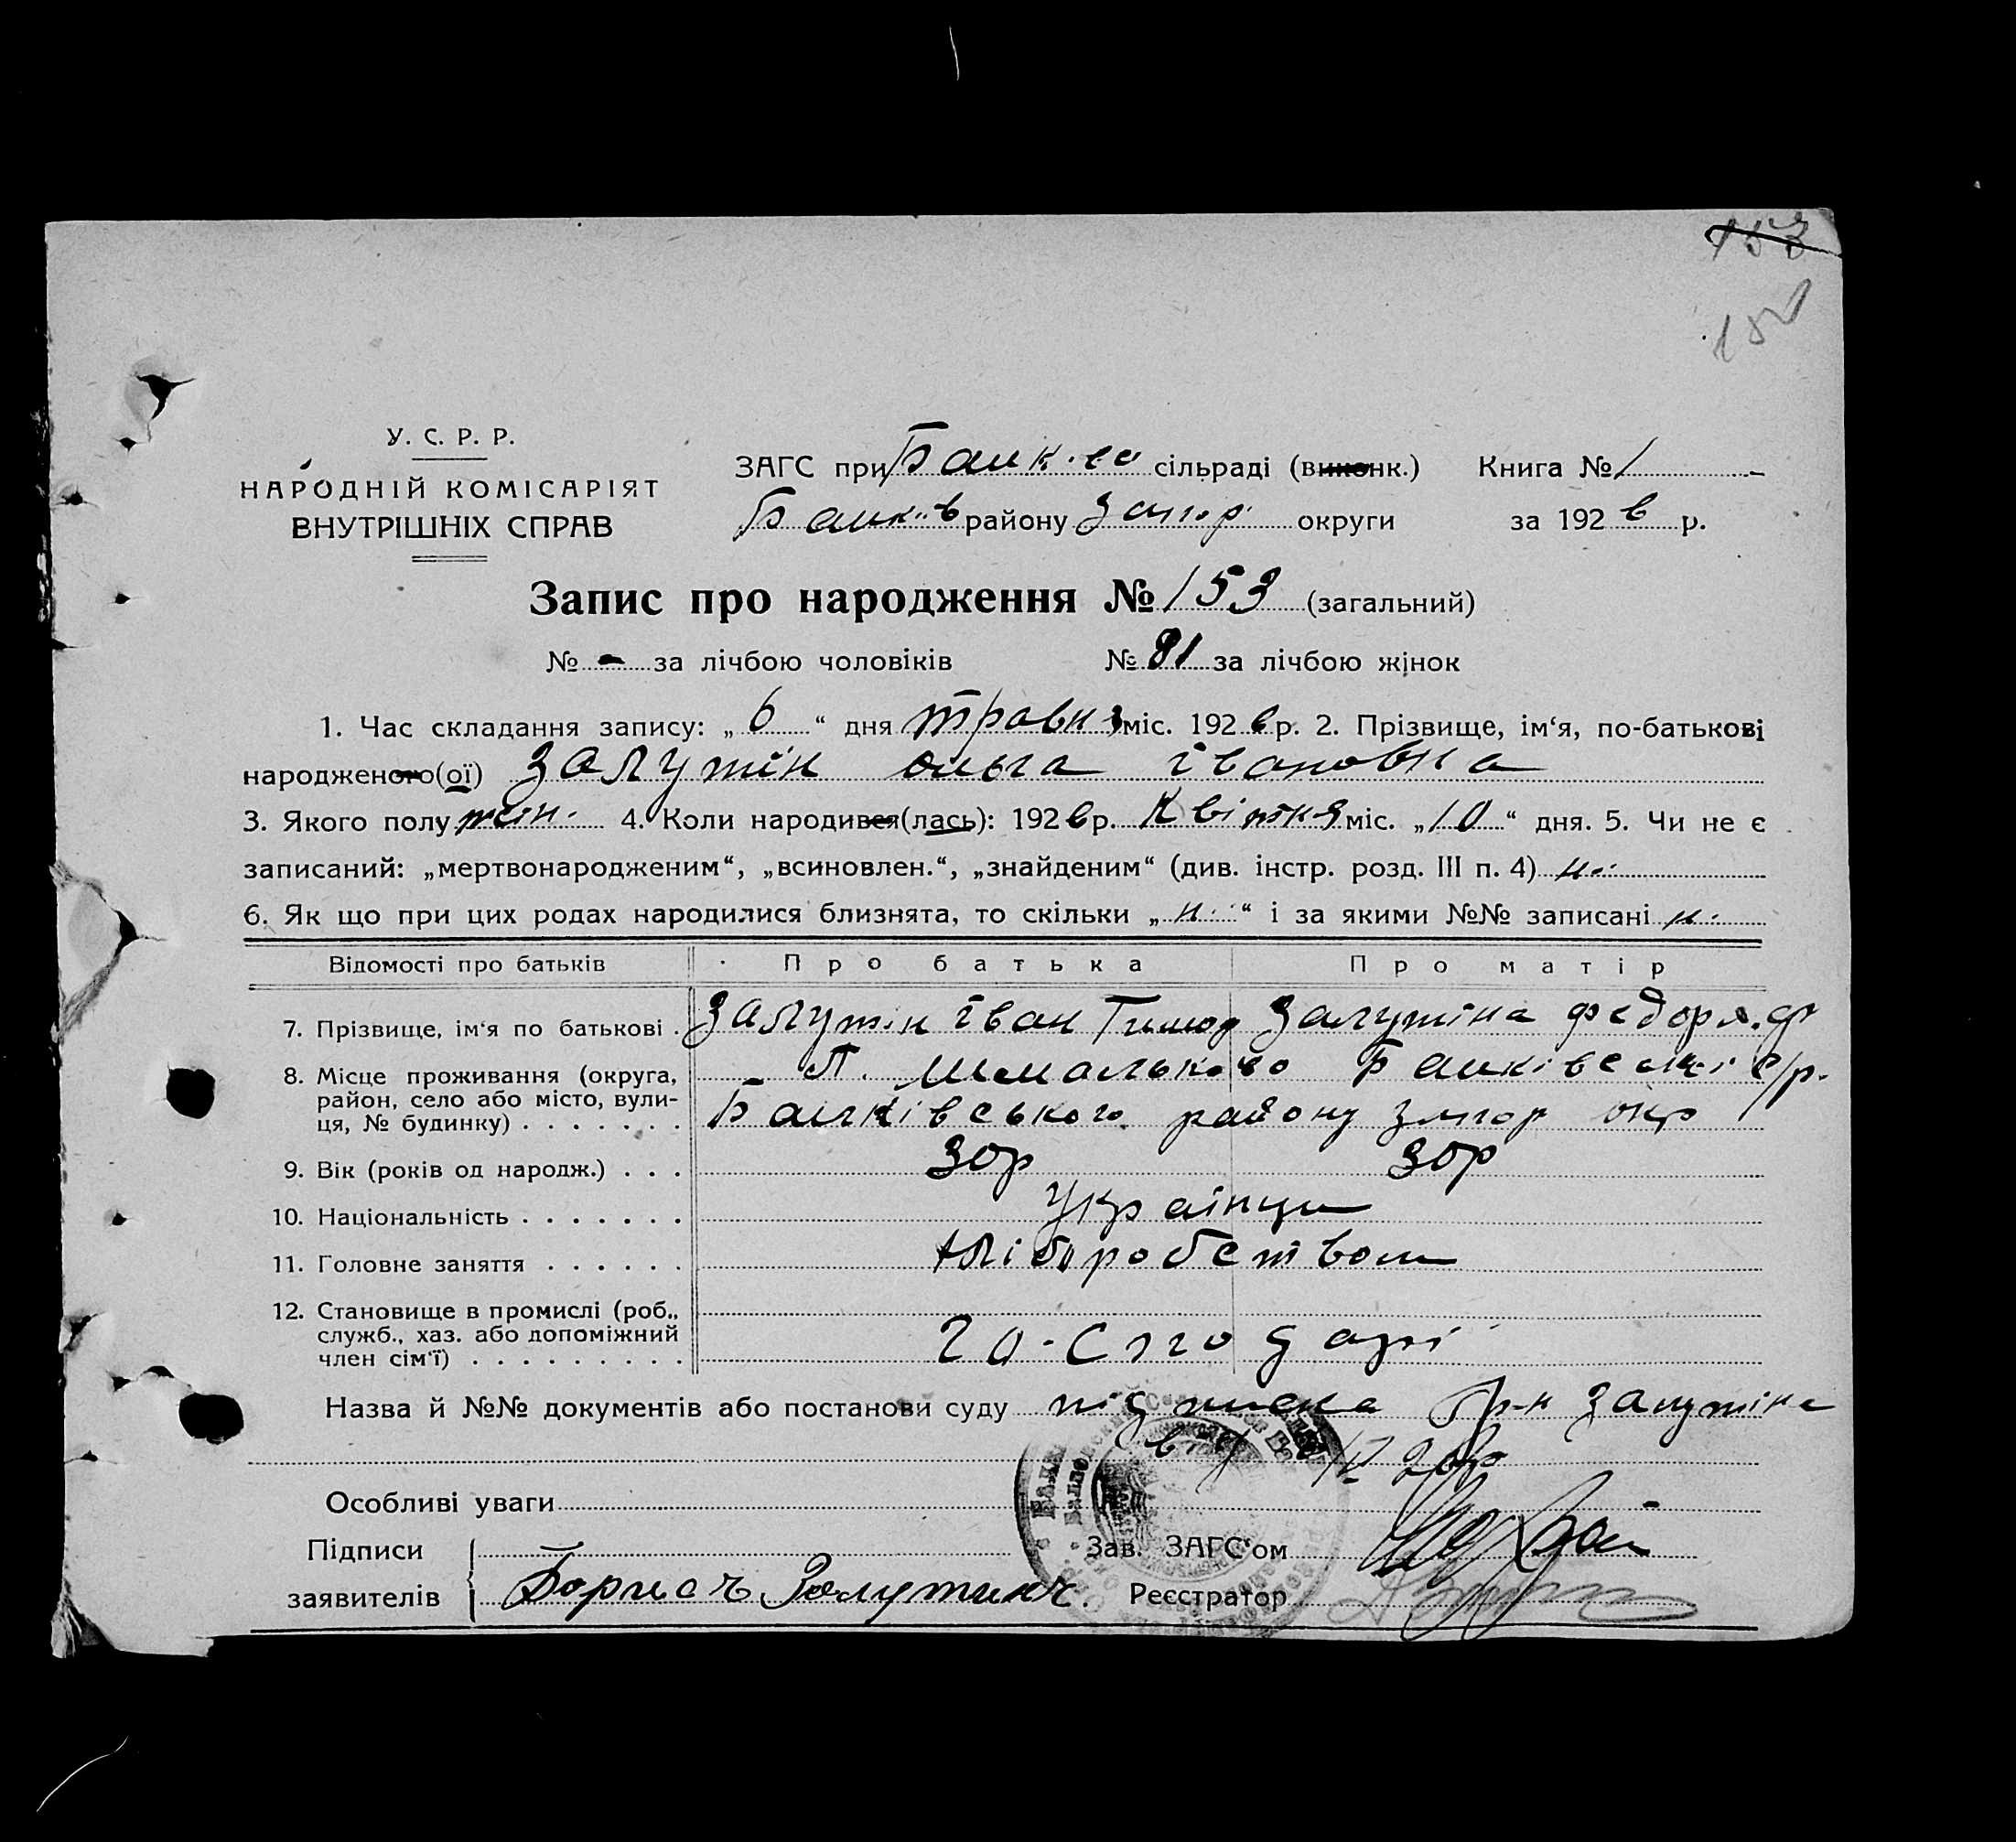 153
У. С. Р. Р.
НАРОДНІЙ КОМІСАРІЯТ
ВНУТРІШНІХ СПРАВ
ЗАГС при сільраді (виконк.) Книга № 1
району Запор округи за 1926 р.
Запис про народження № 153 (загальний)
№ - за лічбою чоловіків № 81 за лічбою жінок
1. Час складання запису: „ 6 “ дня травня міс. 1926 р. 2. Прізвище, ім‘я, по-батькові
народженого(ої) Залутін Ольга Івановна
3. Якого полу жін. 4. Коли народився(лась): 1926 р. Квітня міс. „ 10 “ дня. 5. Чи не є
записаний: „мертвонародженим“, „всиновлен.“, „знайденим“ (див. інстр. розд. III п. 4) н.
6. Як що при цих родах народилися близнята, то скільки „ н. “ і за якими №№ записані н.
Відомості про батьків Про батька Про матір
7. Прізвище, ім‘я по батькові . Залутін Іван Тимоф Залутіна Федора Ф
8. Місце проживання (округа,
район, село або місто, вули-
ця, № будинку) . . . . . . . району Запор окр
9. Вік (років од народж.) . . . 30р 30р
10. Національність . . . . . . . Українци
11. Головне заняття . . . . . . Хліборобством
12. Становище в промислі (роб.,
служб., хаз. або допоміжний
член сім‘ї) . . . . . . . . . Господарі
Назва й №№ документів або постанови суду підписка гр-н Залутіна
Особливі уваги
Підписи
заявителів Залутинъ.
Зав. ЗАГС‘ом
Реєстратор